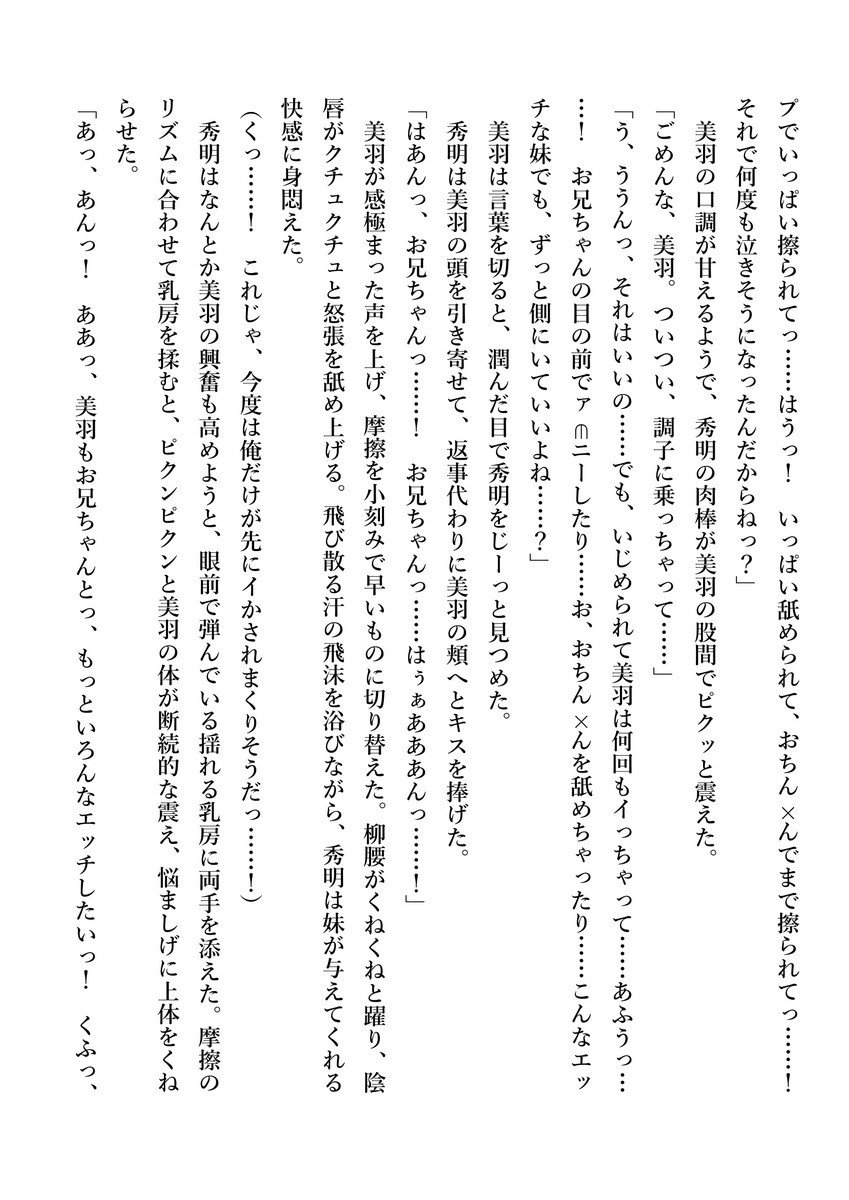 プでいっぱい擦られてっ……はうっ！　いっぱい舐められて、おちん×んでまで擦られてっ……！
それで何度も泣きそうになったんだからねっ？」
　美羽の口調が甘えるようで、秀明の肉棒が美羽の股間でピクッと震えた。
「ごめんな、美羽。ついつい、調子に乗っちゃって……」
「う、ううんっ、それはいいの……でも、いじめられて美羽は何回もイっちゃって……あふうっ…
…！　お兄ちゃんの目の前でァ∋ニーしたり……お、おちん×んを舐めちゃったり……こんなエッ
チな妹でも、ずっと側にいていいよね……？」
　美羽は言葉を切ると、潤んだ目で秀明をじーっと見つめた。
　秀明は美羽の頭を引き寄せて、返事代わりに美羽の頬へとキスを捧げた。
「はあんっ、お兄ちゃんっ……！　お兄ちゃんっ……はぅぁあああんっ……！」
　美羽が感極まった声を上げ、摩擦を小刻みで早いものに切り替えた。柳腰がくねくねと躍り、陰
唇がクチュクチュと怒張を舐め上げる。飛び散る汗の飛沫を浴びながら、秀明は妹が与えてくれる
快感に身悶えた。
（くっ……！　これじゃ、今度は俺だけが先にイかされまくりそうだっ……！）
　秀明はなんとか美羽の興奮も高めようと、眼前で弾んでいる揺れる乳房に両手を添えた。摩擦の
リズムに合わせて乳房を揉むと、ピクンピクンと美羽の体が断続的な震え、悩ましげに上体をくね
らせた。
「あっ、あんっ！　ああっ、美羽もお兄ちゃんとっ、もっといろんなエッチしたいっ！　くふっ、